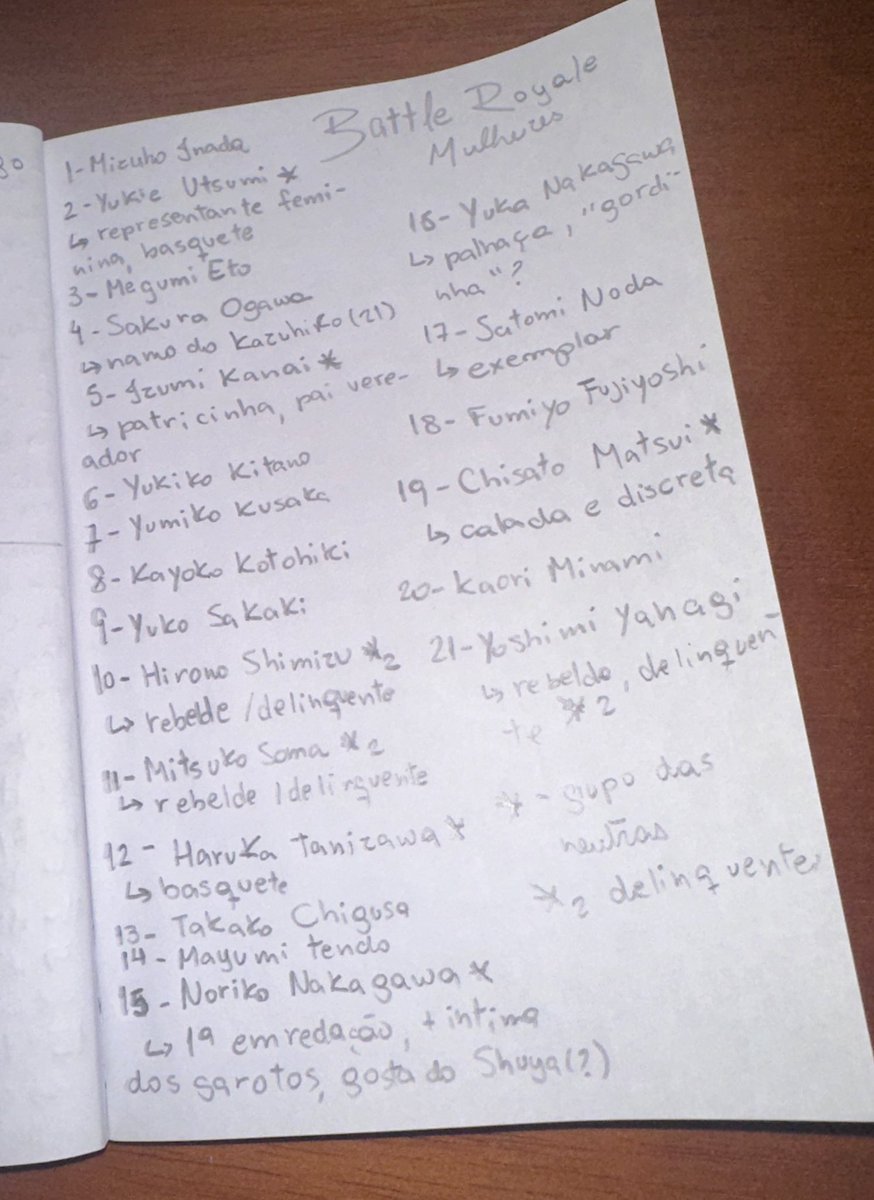 30
Battle Royale
Mulheres
1- Mizuho Inada
2- Yukie Utsumi *
↳ representante femi-
nina, basquete
3- Megumi Eto
4- Sakura Ogawa
↳ namo do Kazuhiko (21)
5- Izumi Kanai *
↳ patricinha, pai vere-
ador
6- Yukiko Kitano
7- Yumiko Kusaka
8- Kayoko Kotohiki
9- Yuko Sakaki
10- Hirono Shimizu *2
↳ rebelde / delinquente
11- Mitsuko Soma *2
↳ rebelde / delinquente
12- Haruka Tanizawa *
↳ basquete
13- Takako Chigusa
14- Mayumi tendo
15- Noriko Nakagawa *
↳ 1ª em redação, + intima
dos garotos, gosta do Shuya (?)
16- Yuka Nakagawa
↳ palhaça, "gordi-
nha"?
17- Satomi Noda
↳ exemplar
18- Fumiyo Fujiyoshi
19- Chisato Matsui *
↳ calada e discreta
20- Kaori Minami
21- Yoshimi Yahagi
↳ rebelde, delinquen-
te *2
* - grupo das
neutras
*2 delinquentes